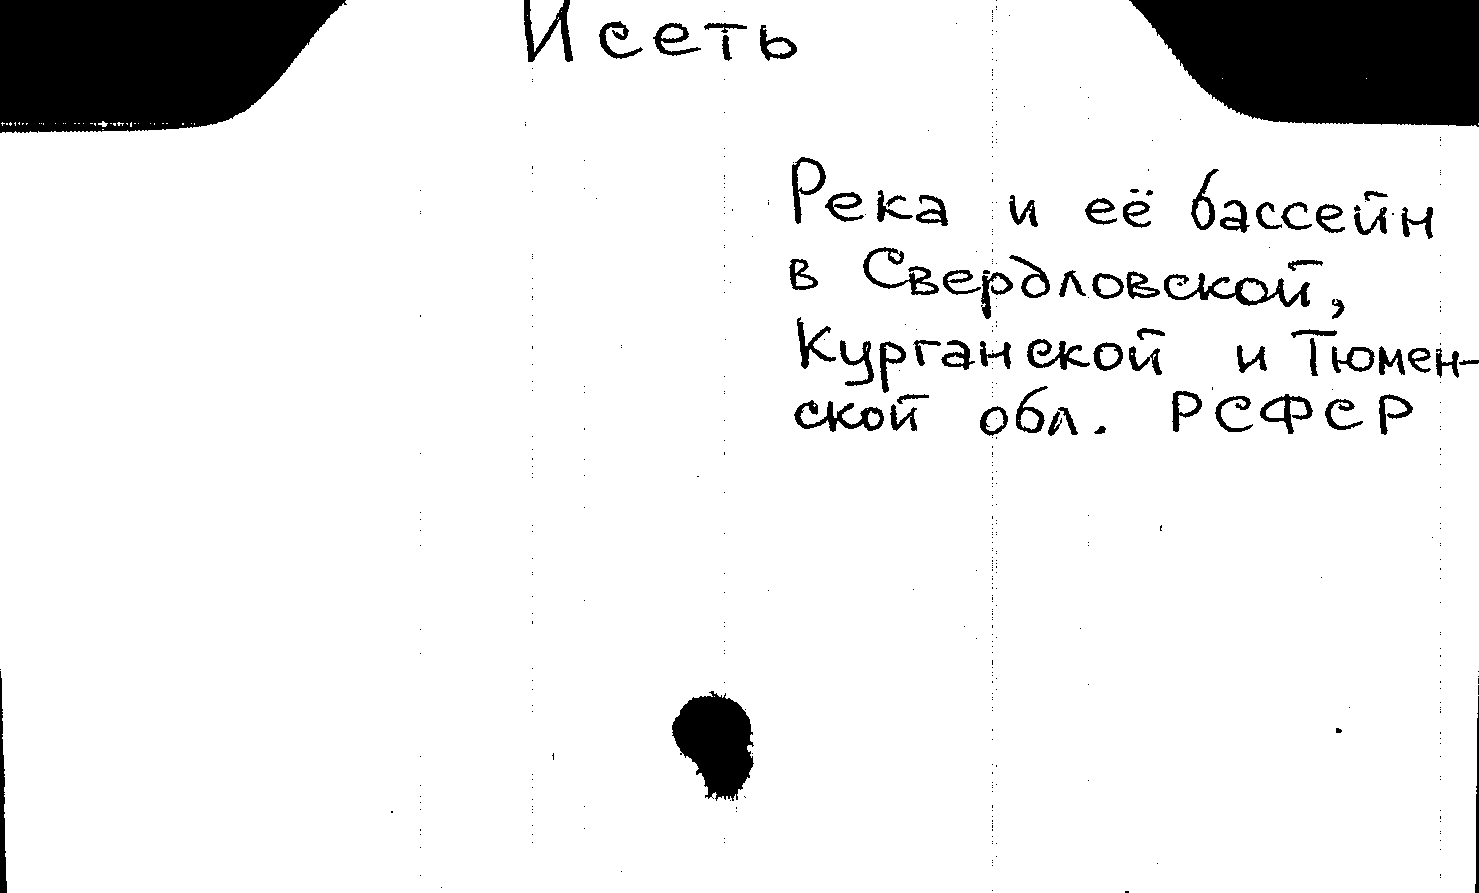 Исеть
Река и её бассейн
в Свердловской,
Курганской и Тюмен-
ской обл. РСФСР